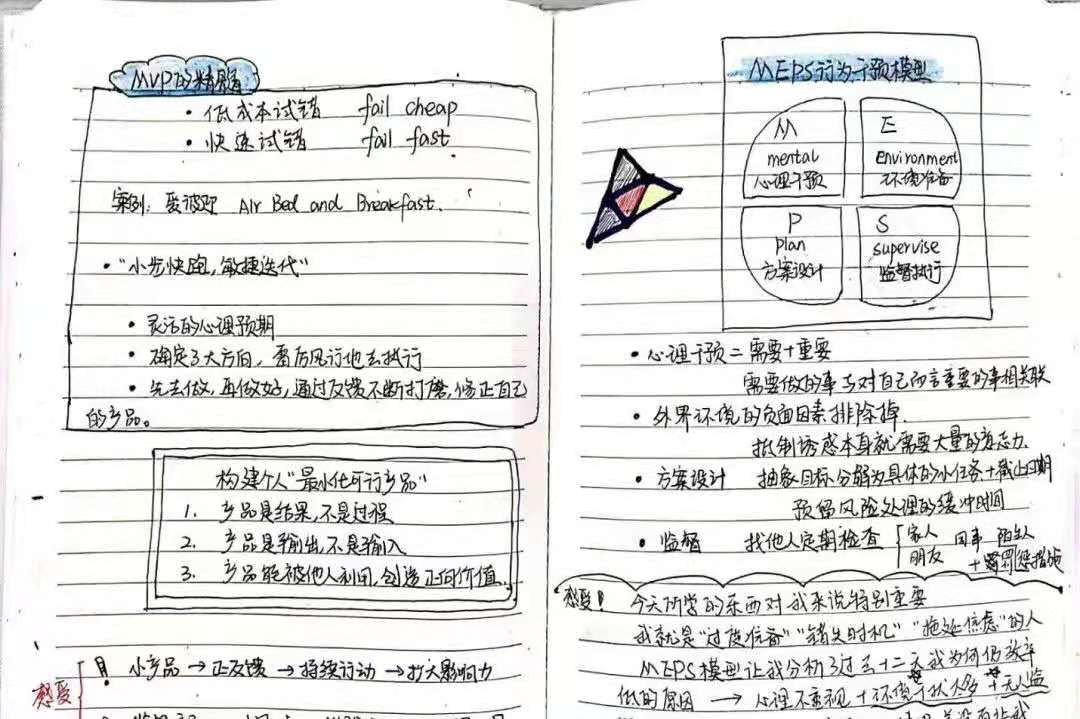 MVP的精髓
• 低成本试错 fail cheap
• 快速试错 fail fast
案例: 爱彼迎 Air Bed and Breakfast.
• "小步快跑, 敏捷迭代"
• 灵活的心理预期
• 确定了大方向, 雷厉风行地去执行
• 先去做, 再做好, 通过反馈不断打磨, 修正自己
的产品。
构建个人"最小化可行产品"
1. 产品是结果, 不是过程
2. 产品是输出, 不是输入
3. 产品能被他人利用, 创造正向价值.
感受
! 小产品 → 正反馈 → 持续行动 → 扩大影响力
MEPS行为干预模型
M
mental
心理干预
E
Environment
环境准备
P
plan
方案设计
S
supervise
监督执行
• 心理干预 = 需要+重要
需要做的事与对自己而言重要的事相关联
• 外界环境的负面因素排除掉.
抵制诱惑本身就需要大量的意志力.
• 方案设计 抽象目标分解为具体的小任务+截止日期
预留风险处理的缓冲时间
• 监督 找他人定期检查 家人 同事 陌生人
朋友 +惩措施
感受! 今天所学的东西对我来说特别重要
我就是"过度准备" "错失时机" "拖延焦虑"的人
MEPS模型让我分析了过去十二天我为何仍效率
低的原因 → 心理不重视+环境干扰太多+无人监